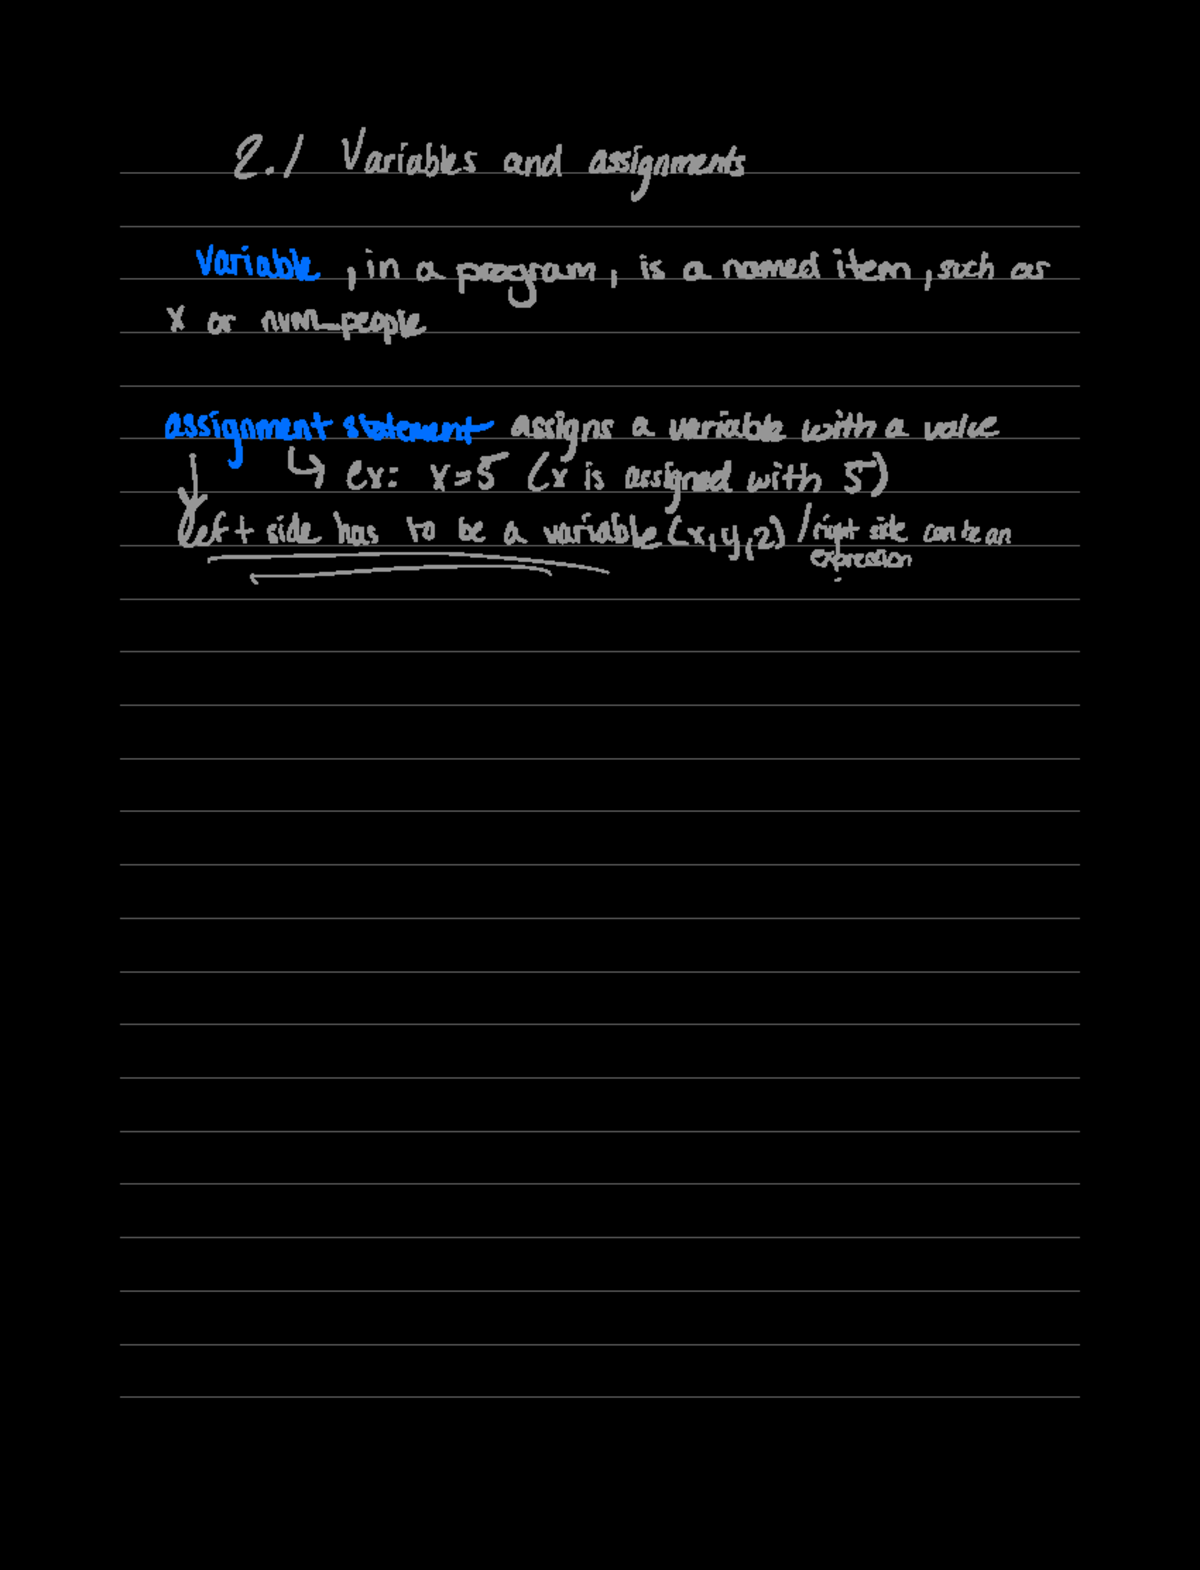 2.1 Variables and assignments
Variable, in a program, is a named item, such as
x or num_people
assignment statement assigns a variable with a value
↳ ex: x=5 (x is assigned with 5)
left side has to be a variable (x,y,z) / right side can be an
expression